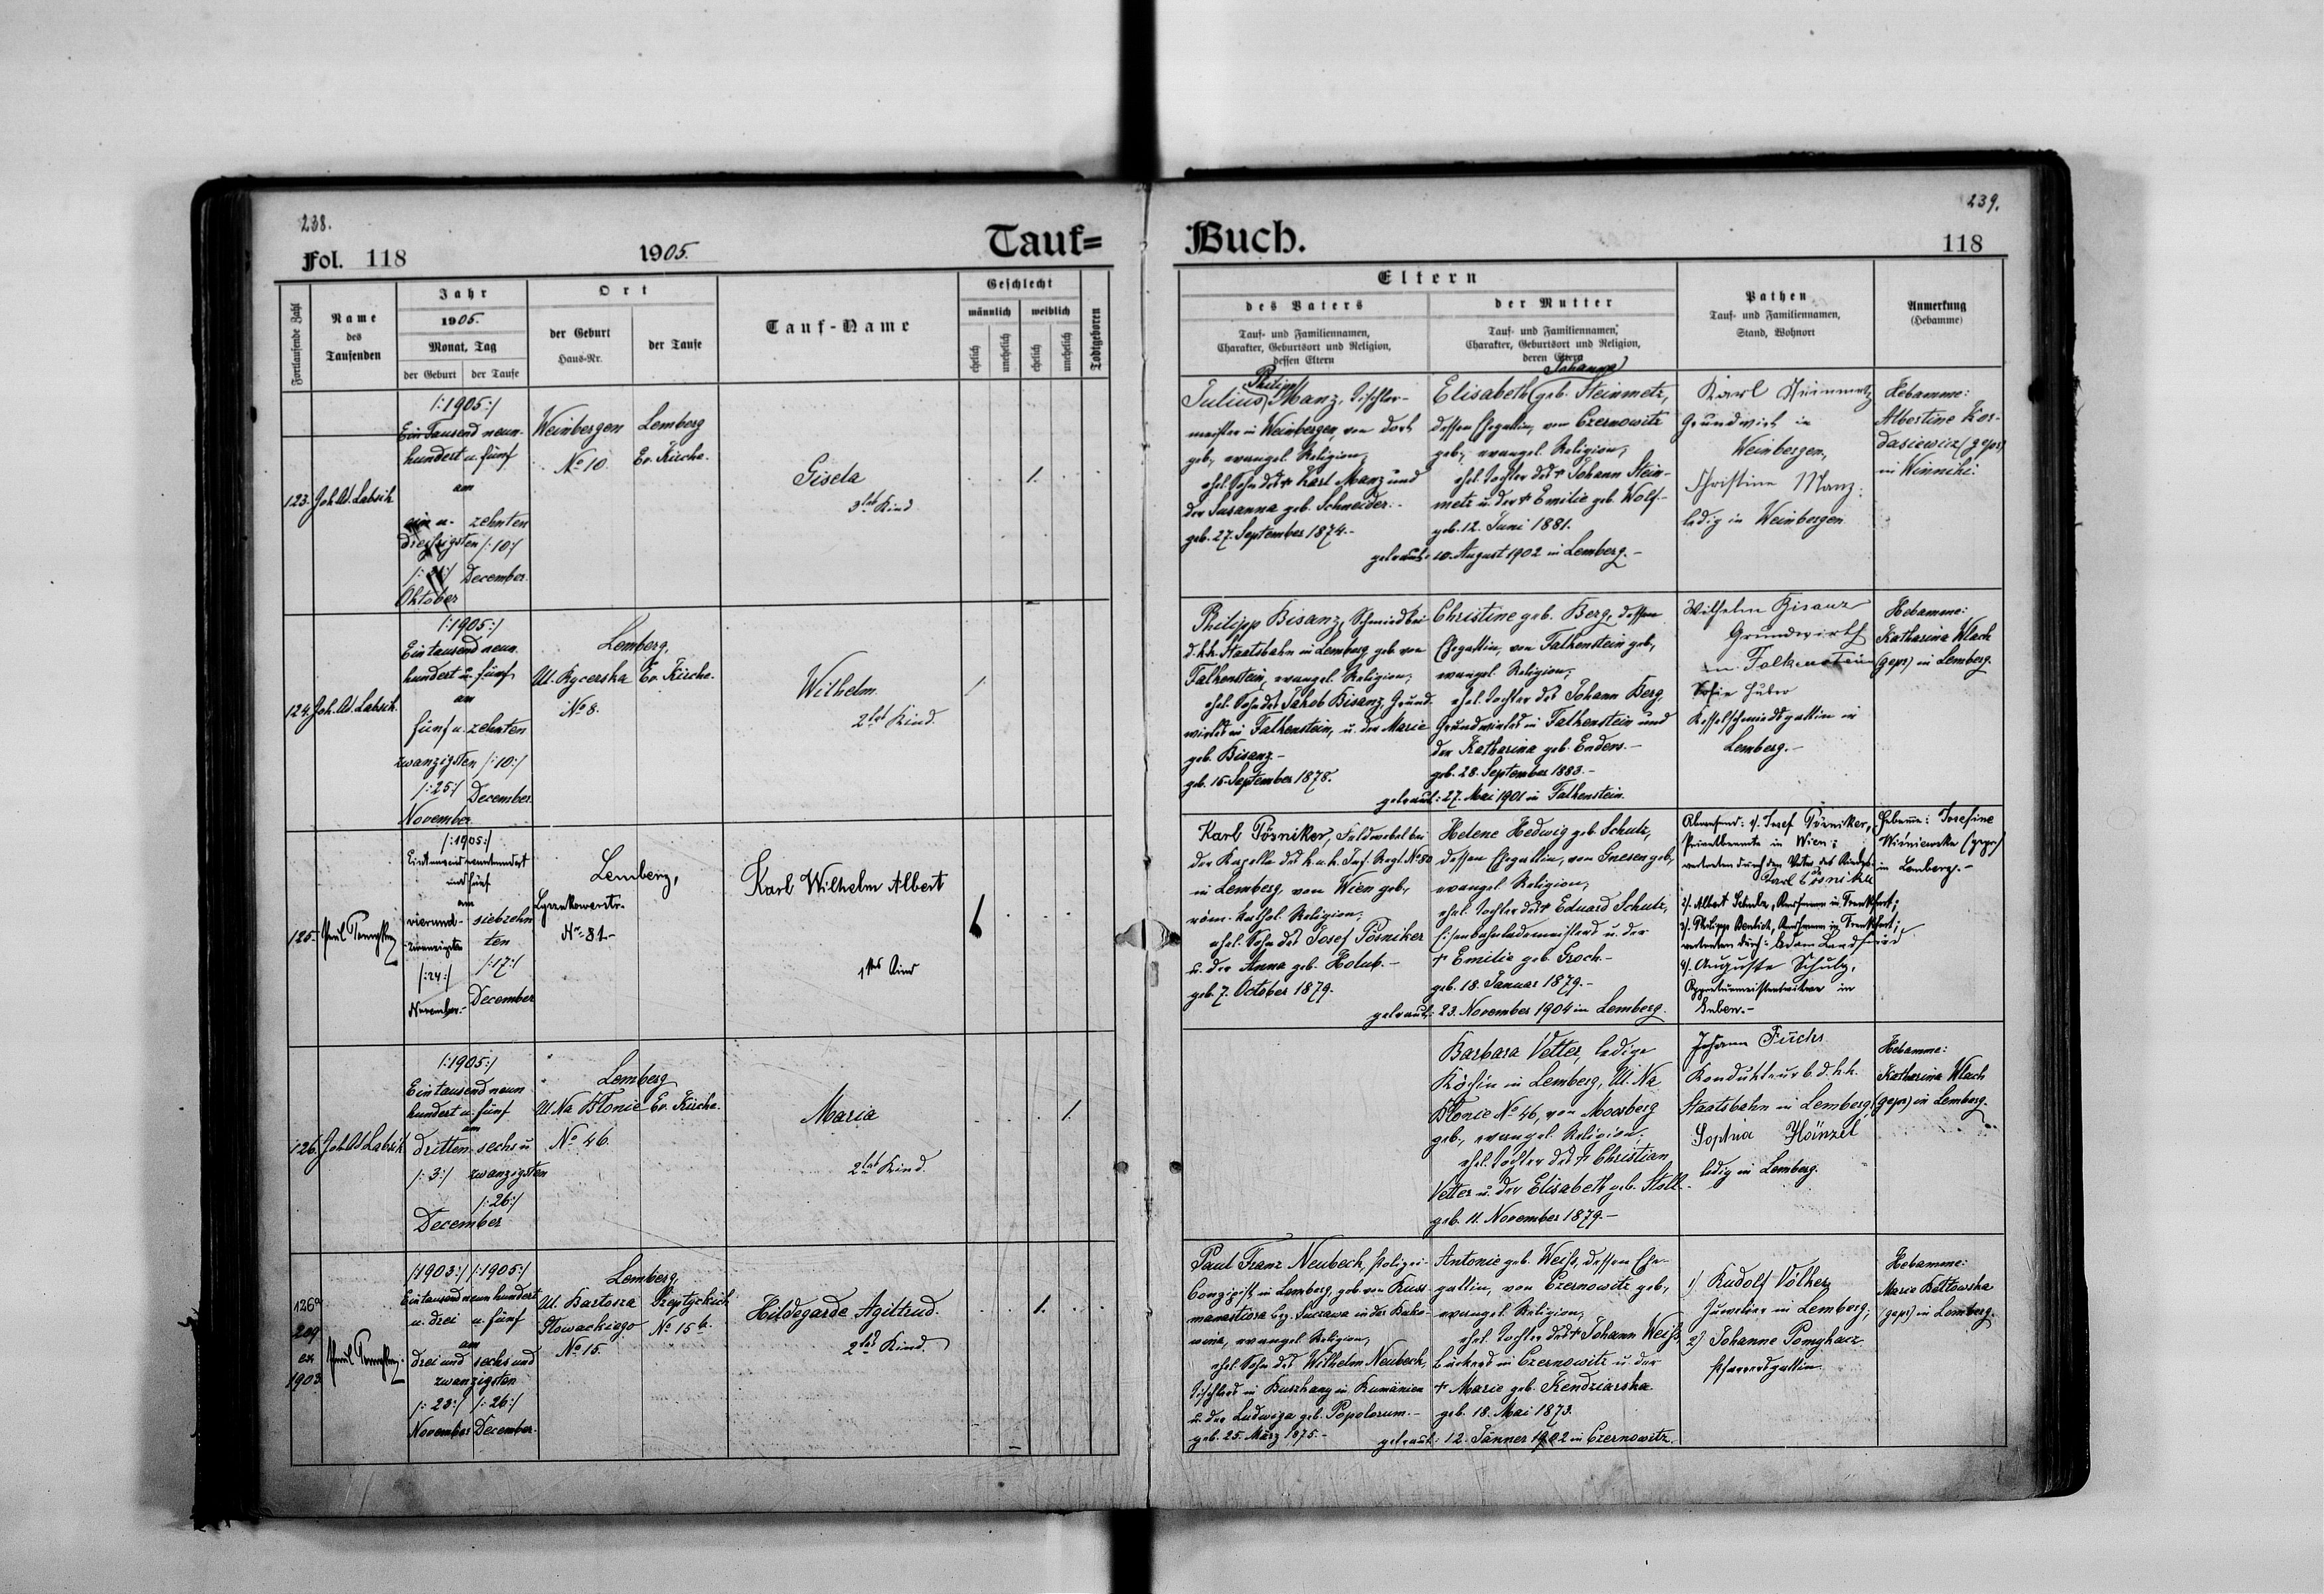 238.
Fol. 118
1905.
Tauf=
Fortlaufende Zahl
Name
des
Taufenden
Jahr
1905.
Monat, Tag
der Geburt
der Taufe
Ort
der Geburt
Haus-Nr.
der Taufe
Tauf-Name
Geschlecht
männlich
weiblich
ehelich
unehelich
ehelich
unehelich
Todtgeboren
123.
Joh. Ad. Labsik
/:1905:/
Ein Tausend neun-
hundert u. fünf
am
ein u.
dreißigsten
/:31:/
Oktober
zehnten
/:10:/
December.
Weinbergen
No 10.
Lemberg
Ev. Kirche.
Gisela
3tes Kind
1.
124.
Joh. Ad. Labsik.
/:1905:/
Ein tausend neun-
hundert u. fünf
am
fünf u.
zwanzigsten
/:25:/
November.
zehnten
/:10:/
December
Lemberg,
Ul. Rycerska
No 8.
Ev. Kirche.
Wilhelm.
2tes Kind.
1
125.
/:1905:/
Eintausendneunhundert
und fünf
am
vierund-
zwanzigsten
/:24:/
November.-
siebzehn
ten
/:17:/
December
Lemberg,
No 81.-
Karl Wilhelm Albert
1tes Kind
1
126.
Joh. Ad. Labsik
/:1905:/
Ein tausend neun
hundert u. fünf
am
dritten
/:3:/
sechs u
zwanzigsten
/:26:/
December
Lemberg
Ul. Na Błonie
No 46.
Ev. Kirche.
Maria
2tes Kind.
1.
126a
209
ex
1903
/:1903:/ /:1905:/
Ein tausend neun hundert
u. drei u. fünf
am
drei und sechs und
zwanzigsten
/:23:/ /:26:/
November December.
Lemberg,
Ul. Bartosza
Głowackiego
No 15.
Szeptyckich
No 15b.
Hildegarde Agiltrud.
2tes Kind.
1.
239.
Buch.
118
Eltern
des Vaters
Tauf- und Familiennamen,
Charakter, Geburtsort und Religion,
dessen Eltern
der Mutter
Tauf- und Familiennamen,
Charakter, Geburtsort und Religion,
deren Eltern
Pathen
Tauf- und Familiennamen,
Stand, Wohnort
Anmerkung
(Hebamme)
Philipp
Julius Manz, Tischler-
meister in Weinbergen, von dort
geb., evangel. Religion,
ehel. Sohn des † Karl Manz und
der Susanna geb. Schneider.-
geb. 27. September 1874.-
Johanna
Elisabeth (geb. Steinmetz,
dessen Ehegattin, von Czernowitz
geb., evangel. Religion,
ehel. Tochter des † Johann Stein-
metz u. der † Emilie geb. Wolf.-
geb. 12. Juni 1881.
getraut: 10. August 1902 in Lemberg.-
Karl Steinmetz
Grundwirt in
Weinbergen,
Christine Manz,
ledig in Weinbergen.
Hebamme:
Albertine Kor-
dasiewicz (gepr)
in Winniki.
Philipp Bisanz, Schmied bei
d. k.k. Staatsbahn in Lemberg geb. von
Falkenstein, evangel. Religion,
ehel. Sohn des Jakob Bisanz, Grund-
wirtes in Falkenstein, u. der Marie
geb. Bisanz.-
geb. 15. September 1878.
Christine geb. Berg, dessen
Ehegattin, von Falkenstein geb.,
evangel. Religion,
ehel. Tochter des Johann Berg,
Grundwirtes in Falkenstein und
der Katharina geb. Enders.-
geb. 28. September 1883.-
getraut: 27. Mai 1901 in Falkenstein.
Wilhelm Bisanz
Grundwirth
in Falkenstein
Sofie Huber
Kesselschmiedsgattin in
Lemberg.-
Hebamme:
Katharina Wlach
(gepr) in Lemberg.
Karl Pösniker, Feldwebel bei
der Kapelle des k.u.k. Inf. Regt. No 80
in Lemberg, von Wien geb.,
röm. kathol. Religion,
ehel. Sohn des Josef Pösniker
u. der Anna geb. Holub.-
geb. 7. October 1879.
Helene Hedwig geb. Schulz,
dessen Ehegattin, von Gnesen geb.,
evangel. Religion,
ehel. Tochter des † Eduard Schulz,
Eisenbahnlademeisters u. der
† Emilie geb. Groch.-
geb. 18. Januar 1879.-
getraut: 23. November 1904 in Lemberg.
Abwesend: 1/. Josef Pösniker,
Privatbeamte in Wien;
vertreten durch den Vater des Kindes
Karl Pösniker
2/. Albert Schulz, Kaufmann in Frankfurt;
3/. Philipp Kaufmann in Frankfurt;
vertreten durch: Adam Landfried
4/. Auguste Schulz,
in
Guben.-
Hebamme: Josefine
Wiśniewska (gepr)
in Lemberg.-
Barbara Vetter, ledige
Köchin in Lemberg, Ul. Na
Błonie No 46, von Moosberg
geb., evangel. Religion,
ehel. Tochter des † Christian
Vetter u. der Elisabeth geb. Stoll.
geb. 11. November 1879.-
Johann Fuchs
Kondukteur b. d. k.k.
Staatsbahn in Lemberg,
Sophia Hänzel
ledig in Lemberg.
Hebamme:
Katharina Wlach
(gepr) in Lemberg.
Paul Franz Neubeck, Polizei-
Conzipist in Lemberg, geb. von Kuss-
manastiora Bez. Suczawa in der Buko-
wina, evangel. Religion,
ehel. Sohn des Wilhelm Neubeck,
Tischlers in in Rumänien
u. der Ludwiga geb. Popolorum.-
geb. 25. März 1875.-
Antonie geb. Weiß, dessen Ehe-
gattin, von Czernowitz geb.,
evangel. Religion,
ehel. Tochter des † Johann Weiß
Bäckers in Czernowitz u. der
† Marie geb. Kendziarska
geb. 18. Mai 1873.
getraut: 12. Jänner 1902 in Czernowitz.
1) Rudolf Völker
Juwelier in Lemberg;
2) Johanne Pomykacz
Pfarrersgattin
Hebamme:
Marie Kotłowska
(gepr) in Lemberg.